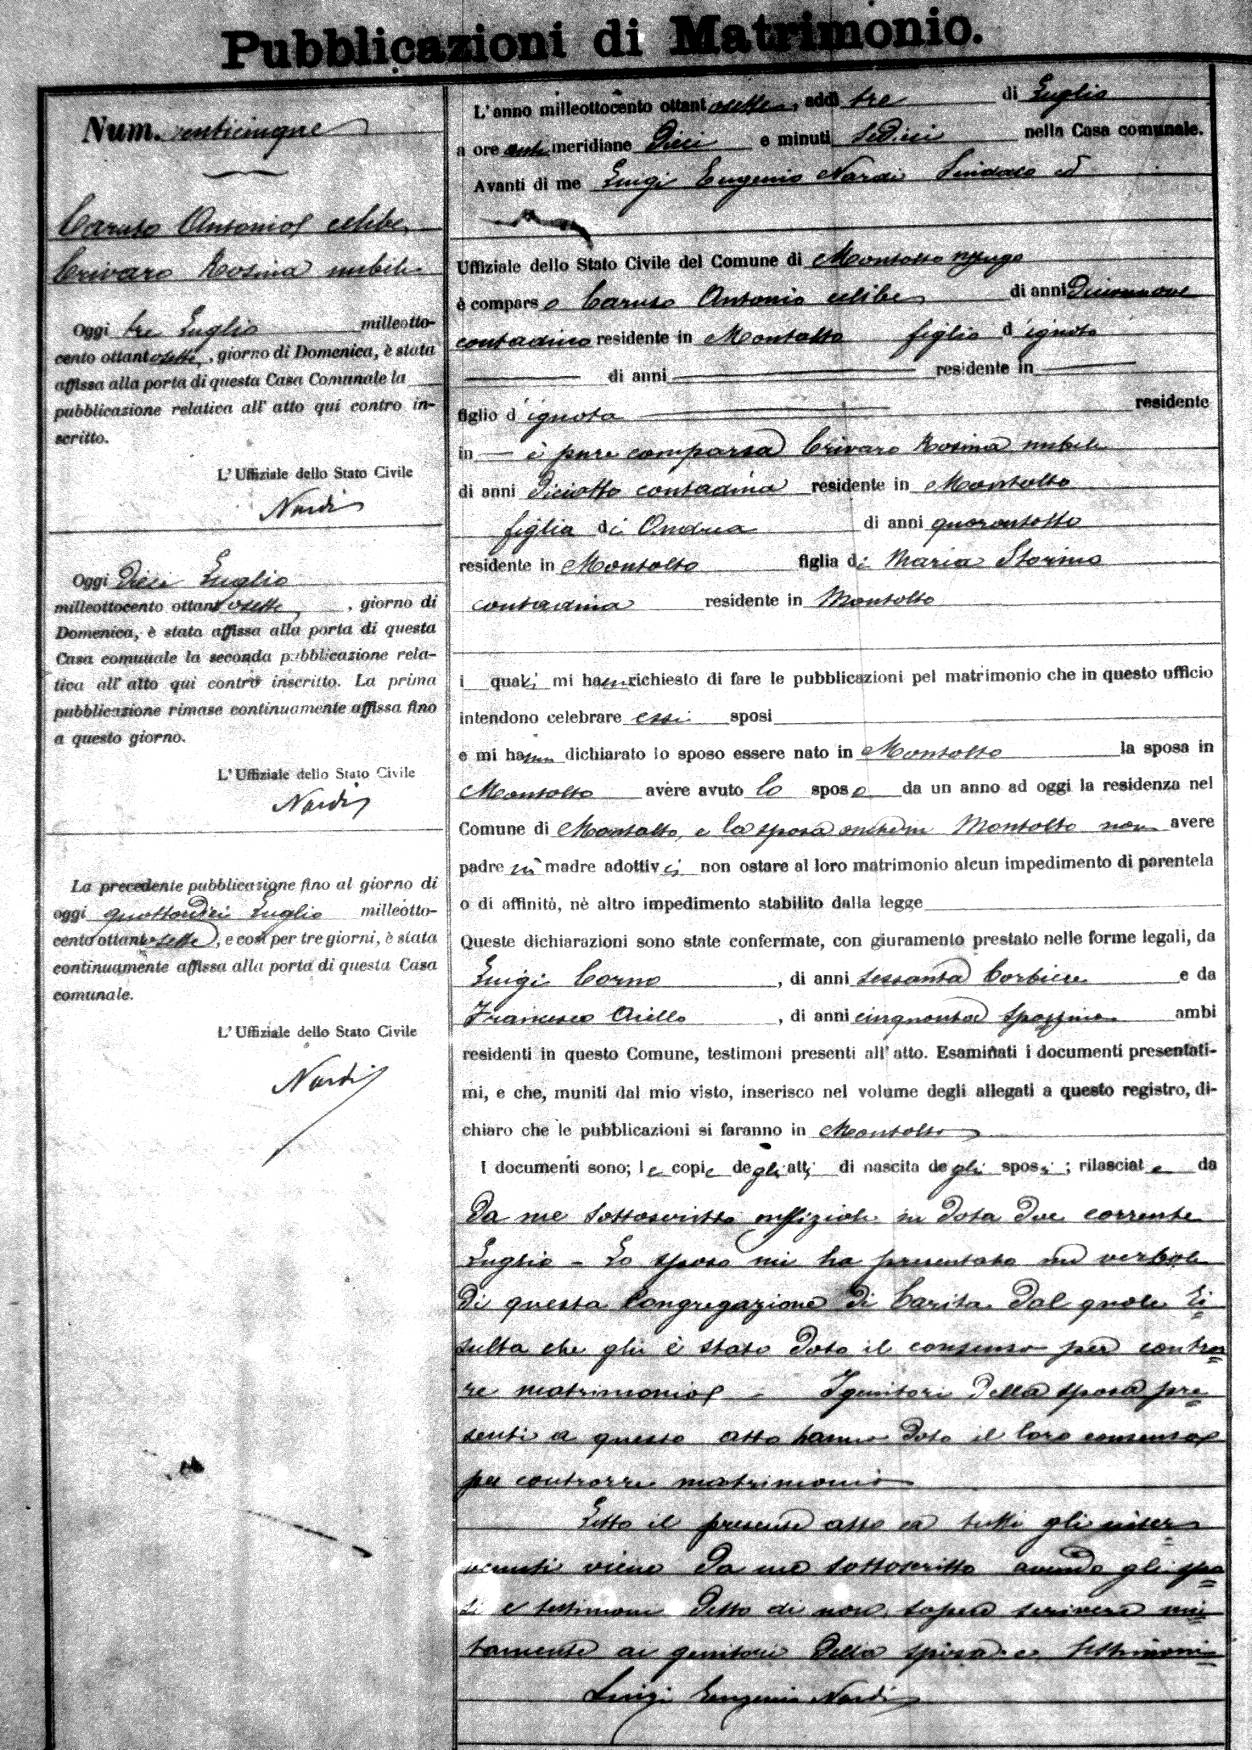 Pubblicazioni di Matrimonio.
Num. venticinque
Caruso Antonio celibe
Crivaro Rosina nubile
Oggi tre Luglio milleotto-
cento ottantasette, giorno di Domenica, è stata
affissa alla porta di questa Casa Comunale la
pubblicazione relatica all' atto qui contro in-
scritto.
L' Uffiziale dello Stato Civile
Nardi
Oggi Dieci Luglio
milleottocento ottantasette, giorno di
Domenica, è stata affissa alla porta di questa
Casa comuuale la seconda pubblicazione rela-
tica all' atto qui contro inscritto. La prima
pubblicazione rimase continuamente affissa fino
a questo giorno.
L' Uffiziale dello Stato Civile
Nardi
La precedente pubblicazione fino al giorno di
oggi quattordici Luglio milleotto-
cento ottantasette, e così per tre giorni, è stata
continuamente affissa alla porta di questa Casa
comunale.
L' Uffiziale dello Stato Civile
Nardi
L' anno milleottocento ottantasette, addì tre di Luglio
a ore antimeridiane Dieci e minuti Sedici nella Casa comunale.
Avanti di me Luigi Eugenio Nardi Sindaco ed
Uffiziale dello Stato Civile del Comune di Montalto Uffugo
è comparso Caruso Antonio celibe di anni Diciannove
contadino residente in Montalto figlio d' ignoto
di anni residente in
figlio d' ignota residente
in è pure comparsa Crivaro Rosina nubile
di anni Diciotto contadina residente in Montalto
figlia di Andrea di anni quarantotto
residente in Montalto figlia di Maria Storino
contadina residente in Montalto
i quali mi hanno richiesto di fare le pubblicazioni pel matrimonio che in questo ufficio
intendono celebrare essi sposi
e mi hanno dichiarato lo sposo essere nato in Montalto la sposa in
Montalto avere avuto lo sposo da un anno ad oggi la residenza nel
Comune di Montalto, e la sposa anche in Montalto non avere
padre nè madre adottivi, non ostare al loro matrimonio alcun impedimento di parentela
o di affinità, nè altro impedimento stabilito dalla legge
Queste dichiarazioni sono state confermate, con giuramento prestato nelle forme legali, da
Luigi Corno, di anni sessanta Corbiere e da
Francesco Aiello, di anni cinquanta Spazzino ambi
residenti in questo Comune, testimoni presenti all' atto. Esaminati i documenti presentati-
mi, e che, muniti dal mio visto, inserisco nel volume degli allegati a questo registro, di-
chiaro che le pubblicazioni si faranno in Montalto
I documenti sono; le copie degli atti di nascita degli sposi; rilasciate da
Da me sottoscritto uffiziale in data due corrente
Luglio - Lo sposo mi ha presentato un verbale
di questa Congregazione di Carità dal quale ri=
sulta che gli è stato dato il consenso per contrar=
re matrimonio - I genitori della sposa pre=
senti a questo atto hanno dato il loro consenso
per contrarre matrimonio
Letto il presente atto a tutti gli inter=
venuti viene da me sottoscritto avendo gli spo=
si e testimoni detto di non sapere scrivere uni=
tamente ai genitori della sposa e testimoni=
Luigi Eugenio Nardi